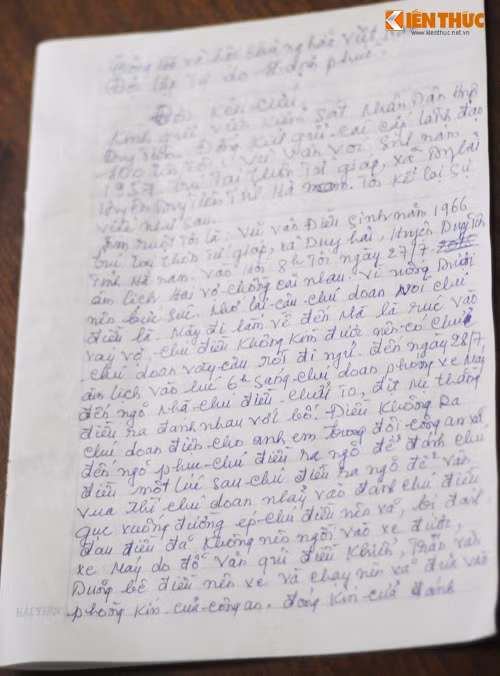 KIẾNTHỨC
www.kienthuc.net.vn
Cộng hòa xã hội chủ nghĩa Việt Nam
Độc lập tự do hạnh phúc
Đơn Kêu cứu
Kính gửi viện kiểm sát nhân Dân huyện
Duy Tiên Đồng Kính gửi các cấp lãnh đạo
tôi vũ văn vơi Sinh năm
1957. trú Tại thôn Tứ giáp, xã Duy hải
Huyện Duy Tiên Tỉnh Hà nam. Tôi Kể lại Sự
việc như sau.
Em ruột tôi là: Vũ văn Điều Sinh năm 1966
trú tại thôn tứ giáp, xã Duy hải, Huyện Duy Tiên
Tỉnh Hà nam. vào hồi 8h Tối ngày 27/7
âm lịch Hai vợ chồng cãi nhau. vì nóng Dưới
nên bực Sức. Nhớ lại câu chú doan nói chú
điều là. Mày đi làm về đến Mả là rúc vào
váy vợ. chú điều Không Kìm được nên có chửi
chú doan vài câu rồi đi ngủ. đến ngày 28/7
âm lịch vào lúc 6h Sáng chú doan phóng xe Máy
đến ngõ Nhà chú điều chửi to, địt mẹ thằng
điều ra đánh nhau với bố. Điều Không Ra
chú doan điện cho anh em trong đội công an xã
đến ngõ phục chú điều ra ngõ để đánh chú
điều một lúc sau chú điều ra ngõ
vừa thì chú doan nhảy vào đánh chú điều
gục xuống đường ép chú điều nên xe, bị đánh
đau điều đã Không nên ngồi vào xe được,
xe Máy do đỗ văn quí điều Khiển, Trần văn
Duẩn bế điều nên xe và chạy nên xã đưa vào
phòng Kín của công an. đóng Kín cửa đánh
HẢI TIẾN